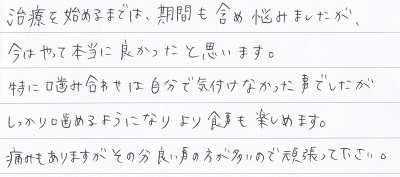 治療を始めるまでは、期間も含め悩みましたが、
今はやって本当に良かったと思います。
特に噛み合わせは自分で気付けなかった事でしたが
しっかり噛めるようになりより食事も楽しめます。
痛みもありますがその分良い事の方が多いので頑張って下さい。